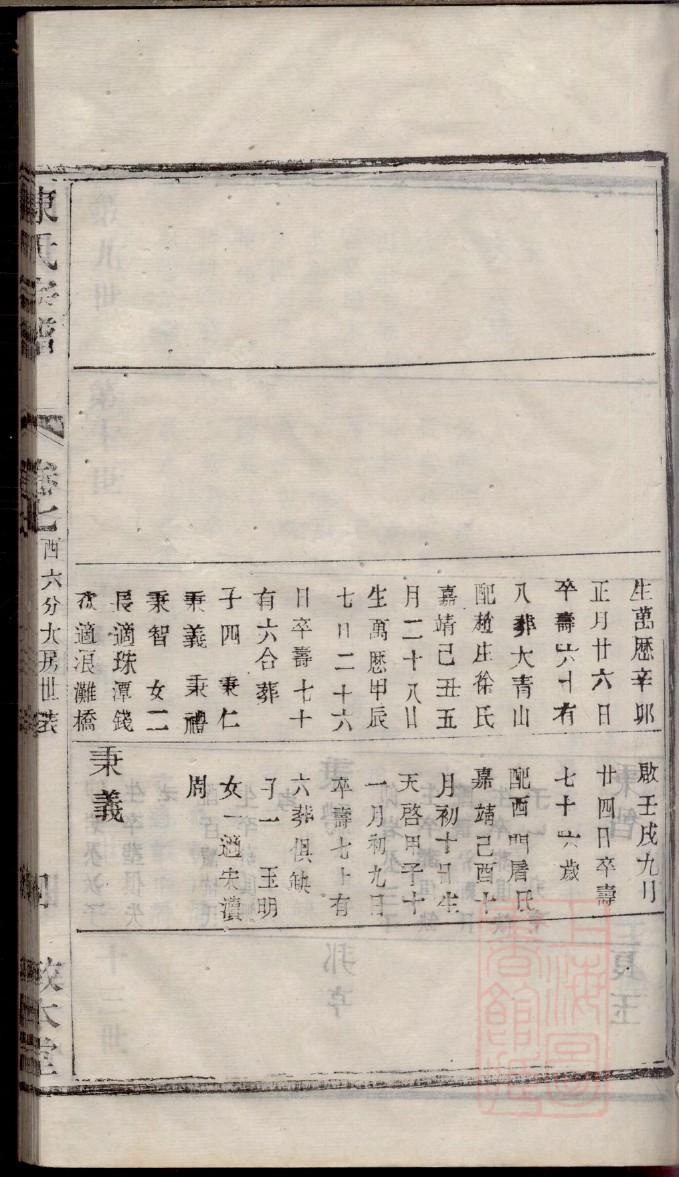 生萬歷辛卯
正月廿六日
卒壽六十有
八葬大青山
配趙庄徐氏
嘉靖己丑五
月二十八日
生萬歷甲辰
七月二十六
日卒壽七十
有六合葬
子四 秉仁
秉義 秉禮
秉智 女二
長適珠潭錢
次適浪灘橋
啟壬戌九月
廿四日卒壽
七十六歲
配西門屠氏
嘉靖己酉十
月初十日生
天啓甲子十
一月初九日
卒壽七十有
六葬俱缺
子一 玉明
女一適宋瀆
周
秉義
氏宗譜
卷七
西六分大房世表
敘本堂